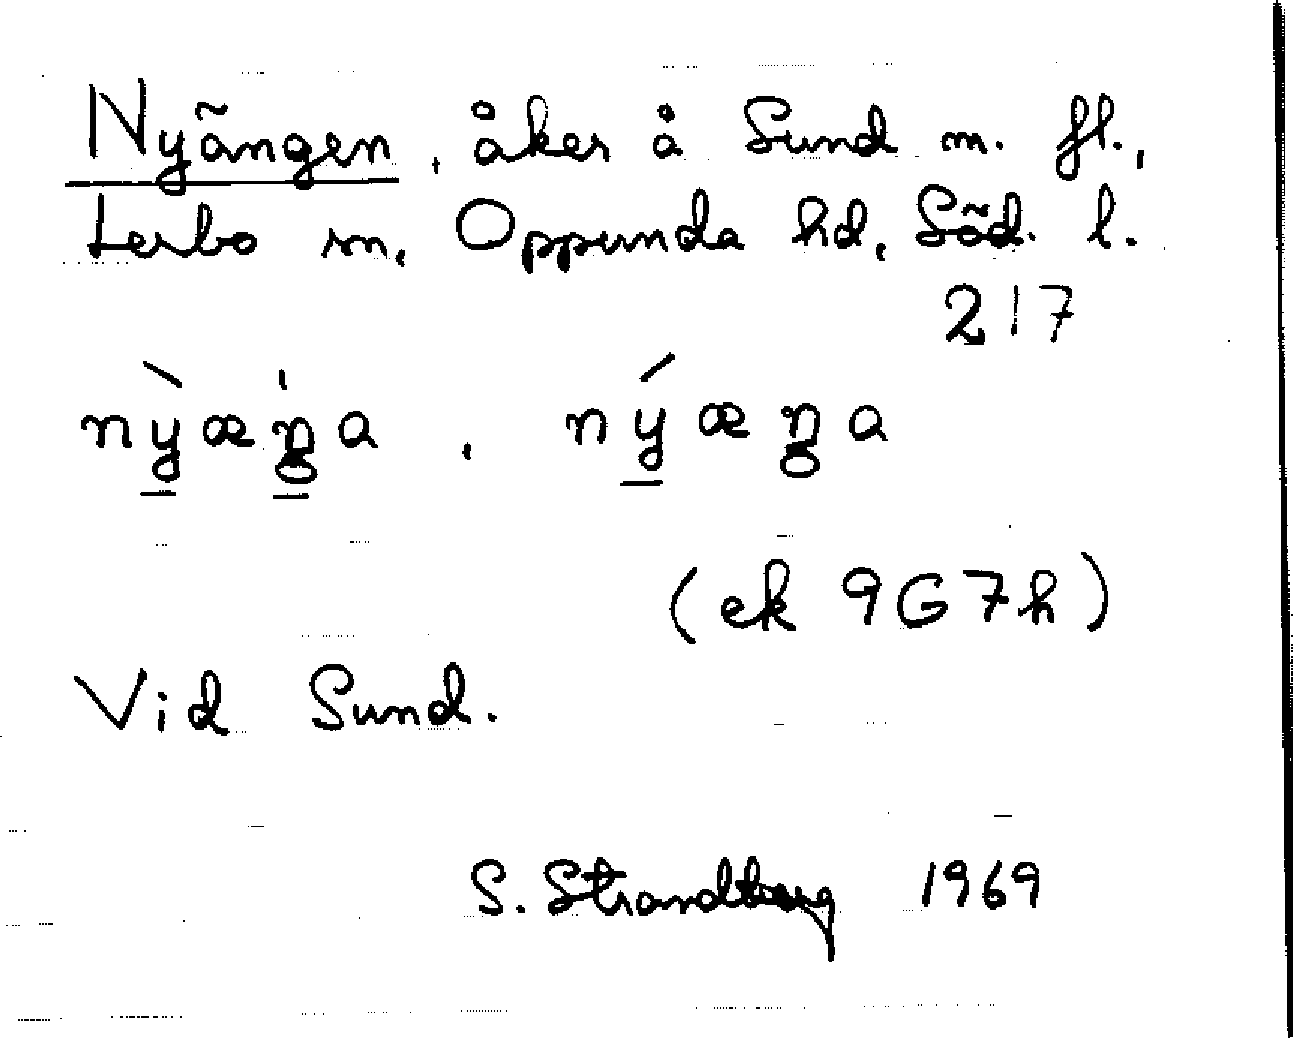 Nyängen, åker å Sund m. fl.,
Lerbo sn, Oppunda hd, Söd. l.
217
nỳæŋ̍a, nýæŋa
(ek 9G7h)
Vid Sund.
S. Strandberg 1969